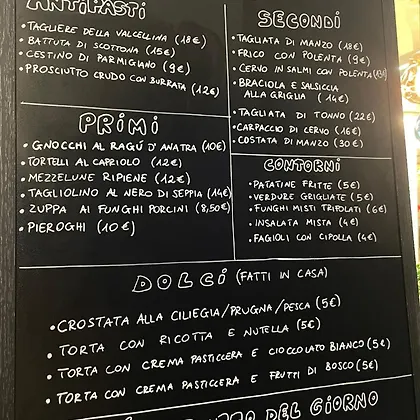 ANTIPASTI
• TAGLIERE DELLA VALCELLINA (18€)
• BATTUTA DI SCOTTONA (15€)
• CESTINO DI PARMIGIANO (9€)
• PROSCIUTTO CRUDO CON BURRATA (12€)
PRIMI
• GNOCCHI AL RAGÚ D'ANATRA (10€)
TORTELLI AL CAPRIOLO (12€)
• MEZZELUNE RIPIENE (12€)
• TAGLIOLINO AL NERO DI SEPPIA (14€)
• ZUPPA AI FUNGHI PORCINI (8,50€)
• PIEROGHI (10€)
SECONDI
• TAGLIATA DI MANZO (18€)
• FRICO CON POLENTA (9€)
• CERVO IN SALMI CON POLENTA
• BRACIOLA E SALSICCIA
ALLA GRIGLIA (14€)
• TAGLIATA DI TONNO (22€)
• CARPACCIO DI CERVO (16€)
• COSTATA DI MANZO (30€)
CONTORNI
• PATATINE FRITTE (5€)
• VERDURE GRIGLIATE (5€)
• FUNGHI MISTI TRIFOLATI (6€)
• INSALATA MISTA (4€)
• FAGIOLI CON CIPOLLA (4€)
DOLCI (FATTI IN CASA)
• CROSTATA ALLA CILIEGIA/PRUGNA/PESCA (5€)
• TORTA CON RICOTTA E NUTELLA (5€)
• TORTA CON CREMA PASTICCERA E CIOCCOLATO BIANCO (5€)
• TORTA CON CREMA PASTICCERA E FRUTTI DI BOSCO (5€)
DEL GIORNO